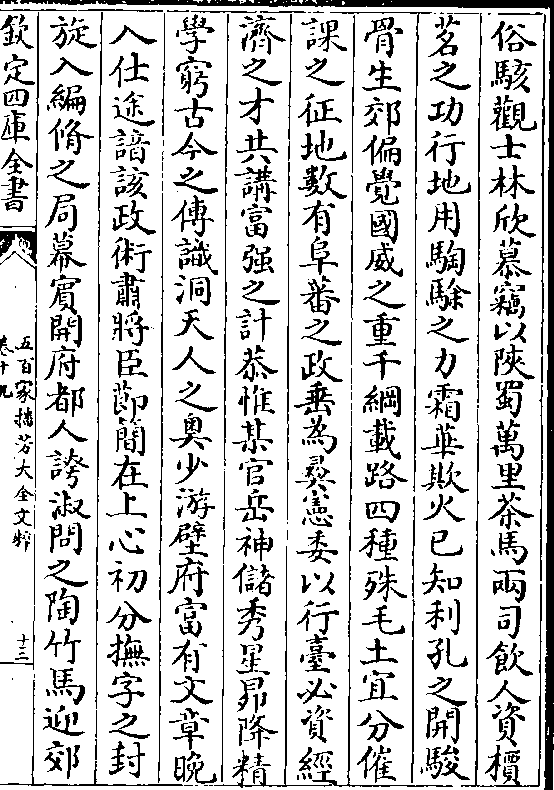 俗駭觀士林欣慕竊以陜蜀萬里茶馬兩司飲人資檟
茗之功行地用騊駼之力霜華欺火已知利孔之開駿
骨生郊偏覺國威之重千綱載路四種殊毛土宜分催
課之征地數有阜蕃之政垂為彞憲委以行臺必資經
濟之才共講富强之計恭惟某官岳神儲秀星昴降精
學窮古今之傳識洞天人之奥少游璧府富有文章晚
入仕途諳該政術肅將臣節簡在上心初分撫字之封
旋入編脩之局幕賓開府都人誇淑問之陶竹馬迎郊
欽定四庫全書
五百家播芳大全文粹
卷十九
十三